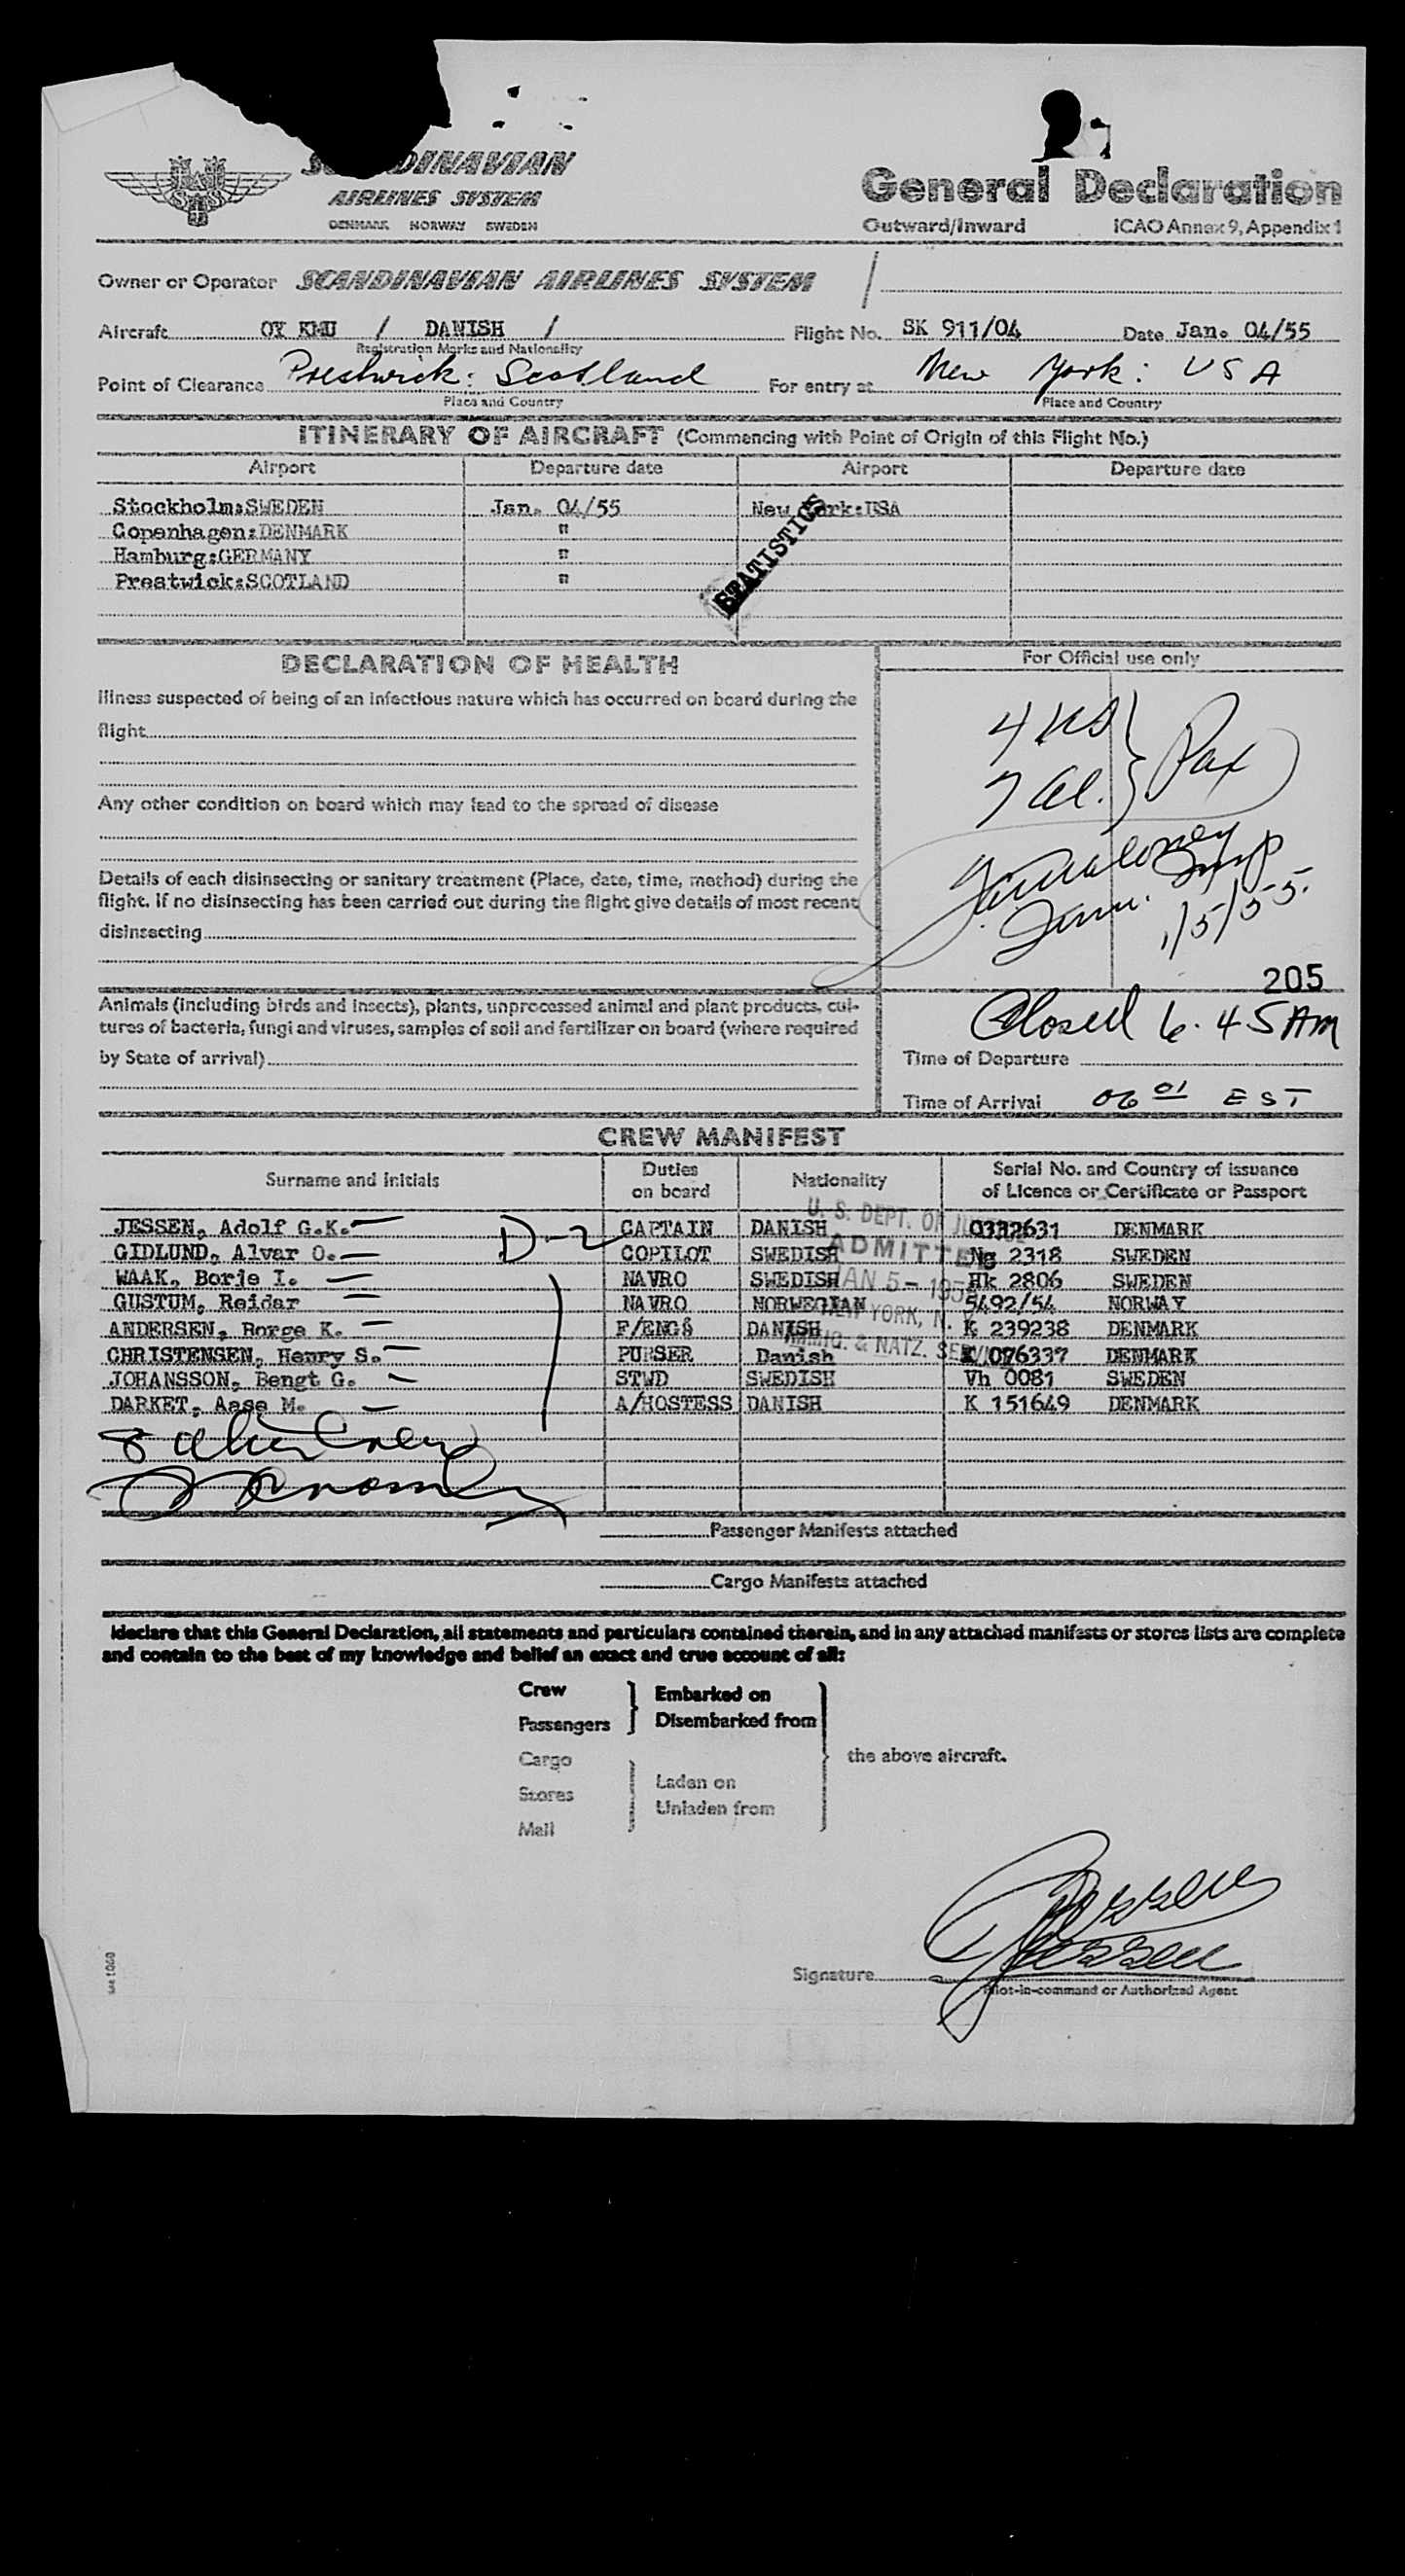 SCANDINAVIAN
AIRLINES SYSTEM
DENMARK NORWAY SWEDEN
General Declaration
Outward/Inward ICAO Annex 9, Appendix 1
Owner or Operator SCANDINAVIAN AIRLINES SYSTEM /
Aircraft OY KMU / DANISH / Flight No. SK 911/04 Date Jan. 04/55
Registration Marks and Nationality
Point of Clearance Prestwick: Scotland For entry at New York: USA
Place and Country Place and Country
ITINERARY OF AIRCRAFT (Commencing with Point of Origin of this Flight No.)
Airport Departure date Airport Departure date
Stockholm:SWEDEN Jan. 04/55 New York:USA
Copenhagen:DENMARK "
Hamburg:GERMANY "
Prestwick:SCOTLAND "
STATISTICS
DECLARATION OF HEALTH
Illness suspected of being of an infectious nature which has occurred on board during the
flight
Any other condition on board which may lead to the spread of disease
Details of each disinsecting or sanitary treatment (Place, date, time, method) during the
flight. If no disinsecting has been carried out during the flight give details of most recent
disinsecting
Animals (including birds and insects), plants, unprocessed animal and plant products, cul-
tures of bacteria, fungi and viruses, samples of soil and fertilizer on board (where required
by State of arrival)
For Official use only
4 US
7 Al. } Pax
1/5/55.
205
Closed 6.45 AM
Time of Departure
Time of Arrival 06 01 EST
CREW MANIFEST
Surname and initials Duties on board Nationality Serial No. and Country of issuance of Licence or Certificate or Passport
JESSEN, Adolf G.K. D-2 CAPTAIN DANISH 0332631 DENMARK
GIDLUND, Alvar O. COPILOT SWEDISH Ng 2318 SWEDEN
WAAK, Borje I. NAVRO SWEDISH Hk 2806 SWEDEN
GUSTUM, Reidar NAVRO NORWEGIAN 5492/54 NORWAY
ANDERSEN, Borge K. F/ENG§ DANISH K 239238 DENMARK
CHRISTENSEN, Henry S. PURSER Danish K 076337 DENMARK
JOHANSSON, Bengt G. STWD SWEDISH Vh 0081 SWEDEN
DARKET, Aase M. A/HOSTESS DANISH K 151649 DENMARK
U. S. DEPT. OF JUSTICE
ADMITTED
JAN 5 - 1955
NEW YORK, N.
IMMIG. & NATZ. SERVICE
8 alien crew
Passenger Manifests attached
Cargo Manifests attached
I declare that this General Declaration, all statements and particulars contained therein, and in any attached manifests or stores lists are complete
and contain to the best of my knowledge and belief an exact and true account of all:
Crew
Passengers
Embarked on
Disembarked from
Cargo
Stores
Mail
Laden on
Unladen from
the above aircraft.
Jessen
Jessen
Signature
Pilot-in-command or Authorized Agent